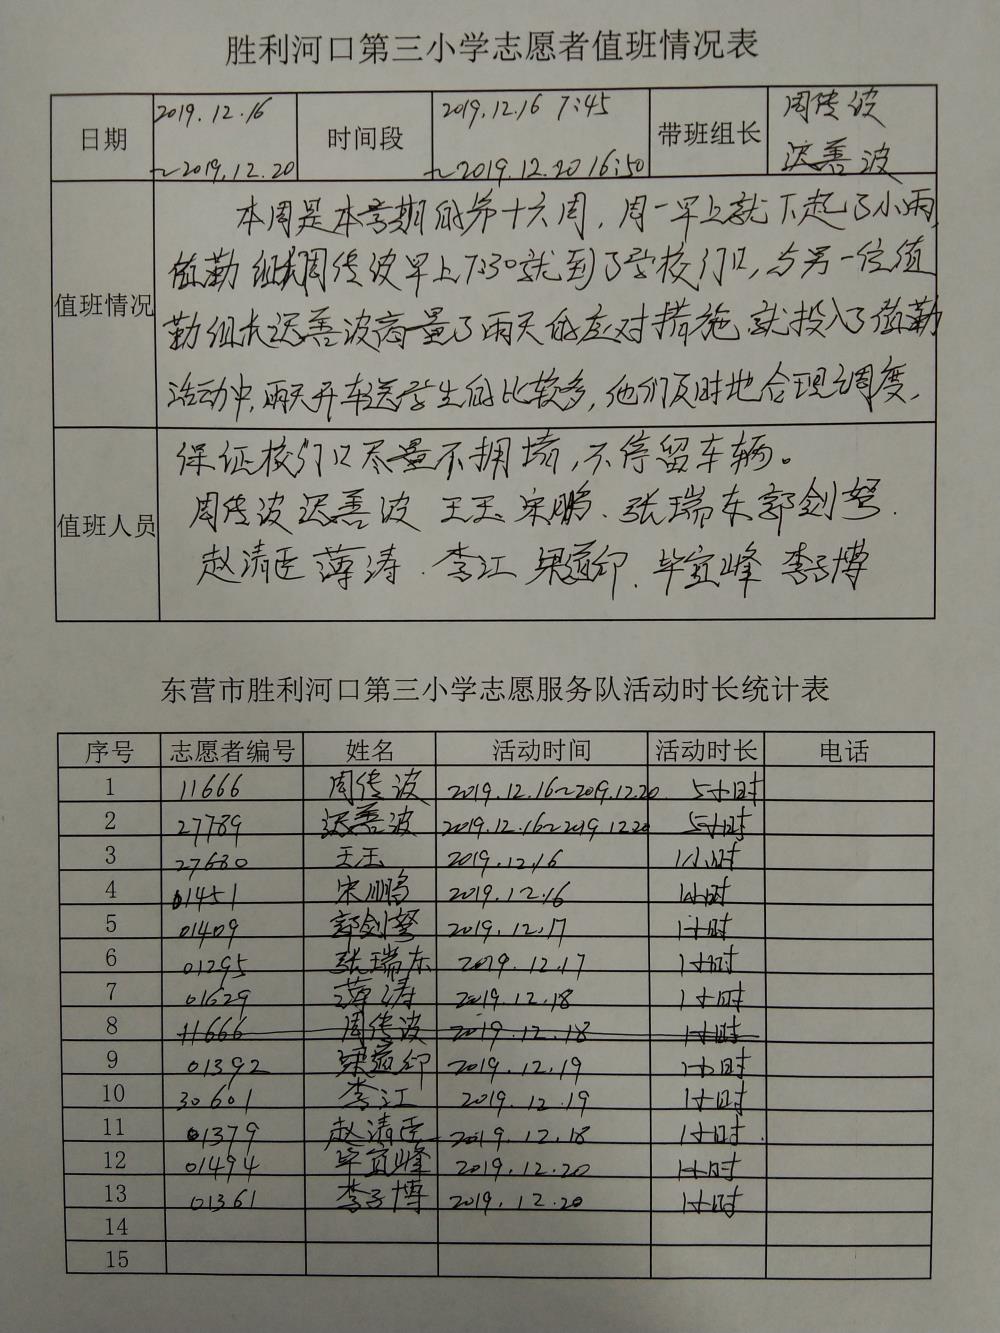 胜利河口第三小学志愿者值班情况表
日期 2019.12.16 ~2019.12.20 时间段 2019.12.16 7:45 ~2019.12.20 16:50 带班组长 周传波 迟善波
值班情况
本周是本学期的第十六周，周一早上就下起了小雨，
值勤组长周传波早上7:30就到了学校门口，与另一位值
勤组长迟善波商量了雨天的应对措施就投入了值勤
活动中，雨天开车送学生的比较多，他们及时地合理调度，
值班人员
保证校门口尽量不拥堵，不停留车辆。
周传波 迟善波 王玉 宋鹏、张瑞东 郭剑弩.
赵清臣 薄涛. 李江 梁道印. 毕宜峰 李子博
东营市胜利河口第三小学志愿服务队活动时长统计表
序号 志愿者编号 姓名 活动时间 活动时长 电话
1 11666 周传波 2019.12.16~2019.12.20 5小时
2 27789 迟善波 2019.12.16~2019.12.20 5小时
3 27680 王玉 2019.12.16 1小时
4 01451 宋鹏 2019.12.16 1小时
5 01409 郭剑弩 2019.12.17 1小时
6 01295 张瑞东 2019.12.17 1小时
7 01629 薄涛 2019.12.18 1小时
8 11666 周传波 2019.12.18 1小时
9 01392 梁道印 2019.12.19 1小时
10 30601 李江 2019.12.19 1小时
11 01379 赵清臣 2019.12.18 1小时.
12 01494 毕宜峰 2019.12.20 1小时
13 01361 李子博 2019.12.20 1小时
14
15